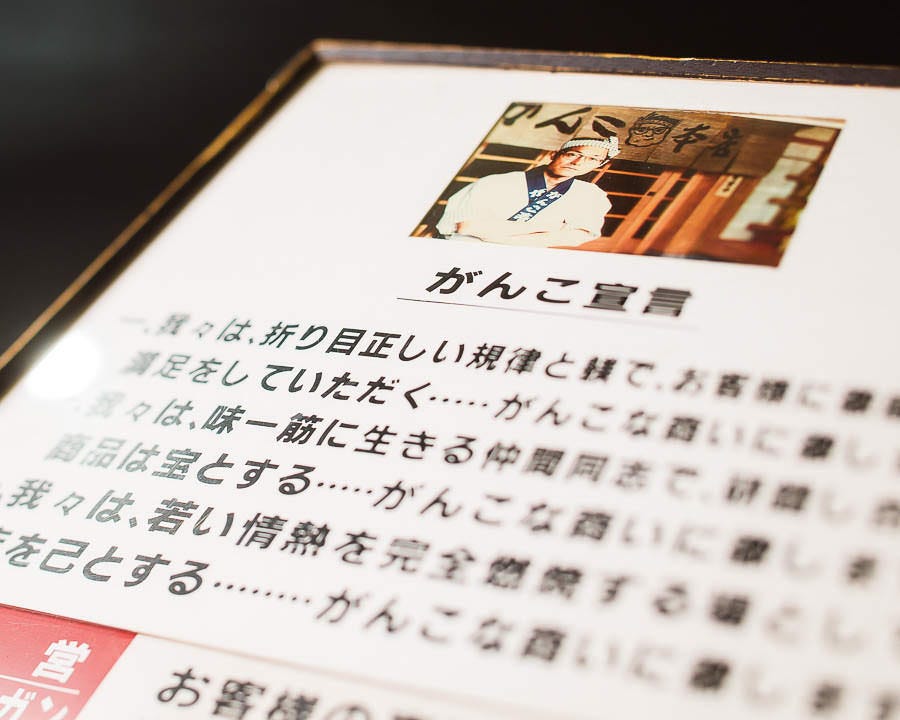 がんこ本店
がんこ宣言
一、我々は、折り目正しい規律と躾で、お客様に
満足をしていただく……がんこな商いに徹し
一、我々は、味一筋に生きる仲間同志で、
商品は宝とする……がんこな商いに徹しま
、我々は、若い情熱を完全燃焼する場とし
店を己とする………がんこな商いに徹します
営
ガン
お客様の